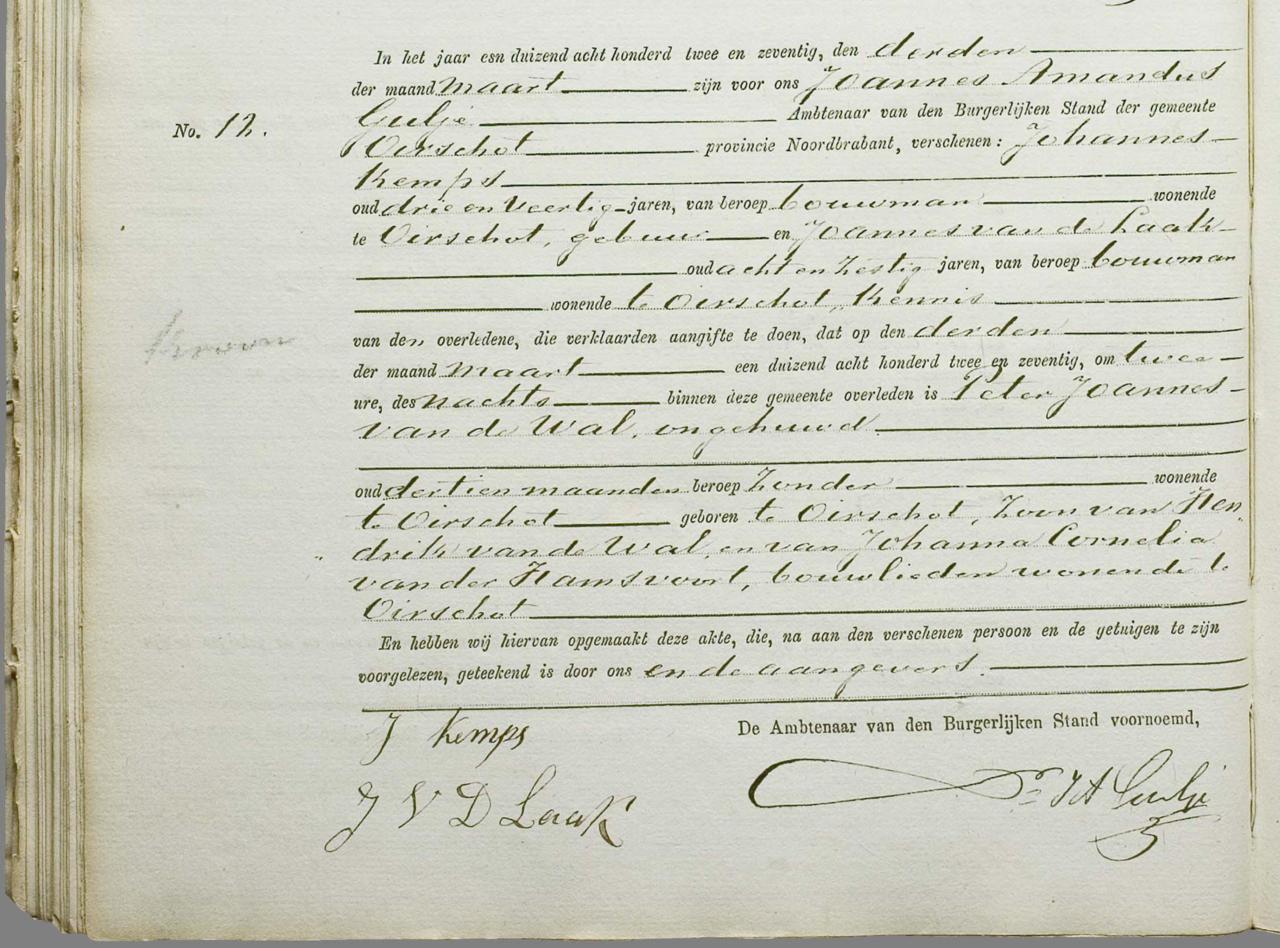 In het jaar een duizend acht honderd twee en zeventig, den derden
der maand maart zijn voor ons Joannes Amandus
Gulje Ambtenaar van den Burgerlijken Stand der gemeente
No. 12.
Oirschot provincie Noordbrabant, verschenen: Johannes
Kemps
oud drie en veertig jaren, van beroep bouwman wonende
te Oirschot, gebuur en Joannes van de Laak
oud acht en zestig jaren, van beroep bouwman
wonende te Oirschot, kennis
van den overledene, die verklaarden aangifte te doen, dat op den derden
der maand maart een duizend acht honderd twee en zeventig, om twee
ure, des nachts binnen deze gemeente overleden is Peter Joannes
van de Wal, ongehuwd
oud dertien maanden beroep zonder wonende
te Oirschot geboren te Oirschot, zoon van Hen„
„drik van de Wal, en van Johanna Cornelia
van der Hamsvoort, bouwlieden wonende te
Oirschot
En hebben wij hiervan opgemaakt deze akte, die, na aan den verschenen persoon en de getuigen te zijn
voorgelezen, geteekend is door ons en de aangevers.
J Kemps
De Ambtenaar van den Burgerlijken Stand voornoemd,
J V D Laak
JA Gulje